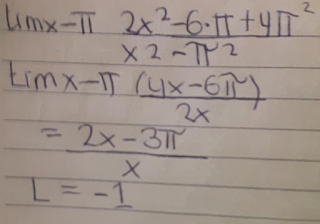 Limx-π 2x²-6·π+4π²
x2-π²
Limx-π (4x-6π)
2x
= 2x-3π
x
L = -1